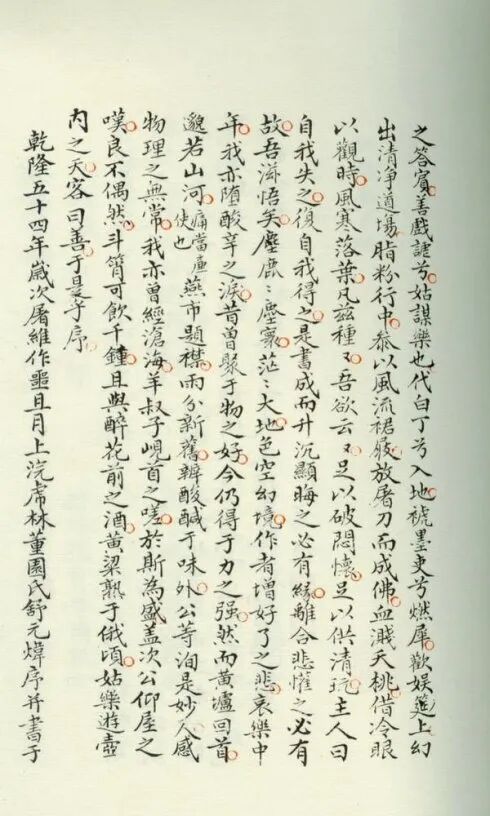 之答賓善戲謔兮姑謀樂也代白丁兮入地褫墨吏兮燃犀歡娛筵上幻
出清淨道塲脂粉行中叅以風流裙屐放屠刀而成佛血濺夭桃借冷眼
以觀時風寒落葉凡茲種〻吾欲云〻足以破悶懷足以供清玩主人曰
自我失之復自我得之是書成而升沉顯晦之必有緣離合悲懽之必有
故吾滋悟矣鹿〻塵寰茫〻大地色空幻境作者增好了之悲哀樂中
年我亦堕酸辛之淚昔曾聚于物之好今仍得于力之强然而黃壚回首
邈若山河痛當廉使也燕市題襟雨分新舊辨酸醎于味外公等洵是妙人感
物理之無常我亦曾經滄海羊叔子峴首之嗟於斯為盛盖次公仰屋之
嘆良不偶然斗筲可飲千鍾且與醉花前之酒黃粱熟于俄頃姑樂遊壺
内之天客曰善于是乎序
乾隆五十四年歲次屠維作噩且月上浣虎林董園氏舒元煒序并書于